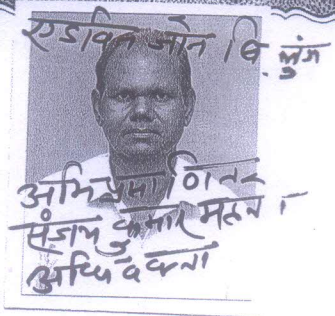 एडविन जोन बि. लुंग
अभिप्रमाणित
संजय कुमार महतो
अधिवक्ता